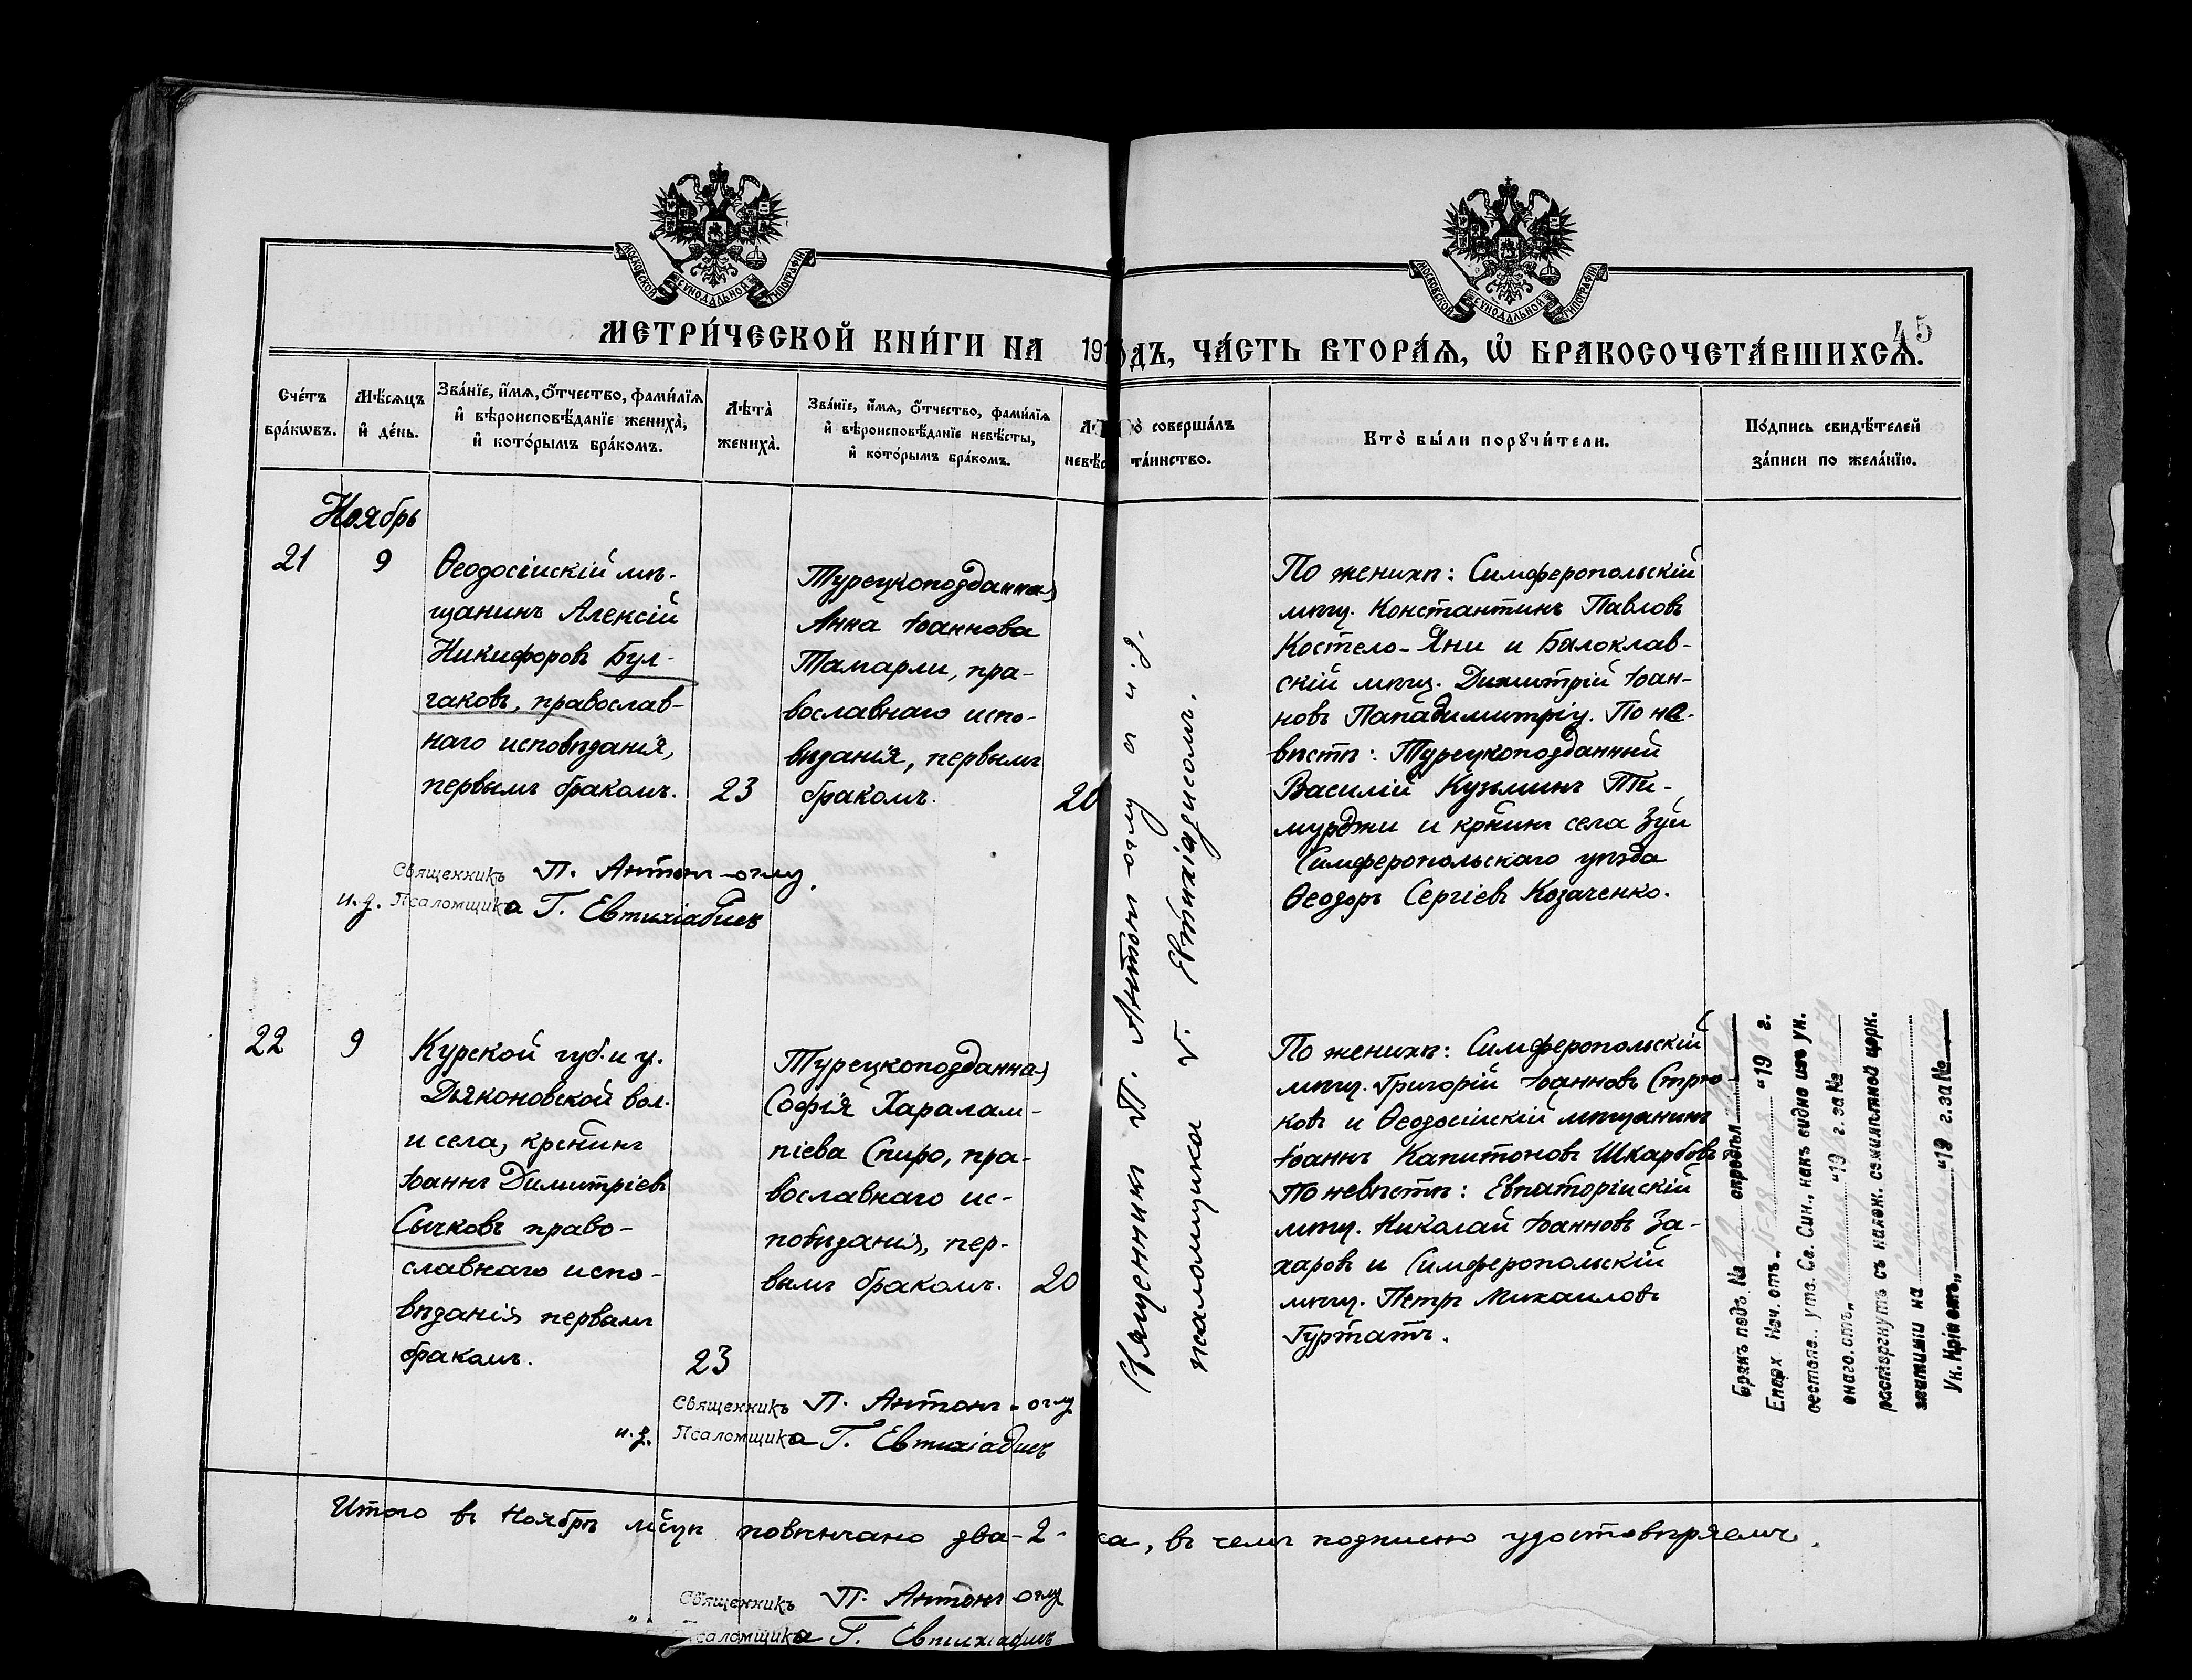 МОСКОВСКОЙ СУНОДАЛЬНОЙ ТИПОГРАФІИ
МОСКОВСКОЙ СУНОДАЛЬНОЙ ТИПОГРАФІИ
МЕТРИ́ЧЕСКОЙ КНИ́ГИ НА 191
ОДЪ, ЧА́СТЬ ВТОРА́Ѧ, Ѽ БРАКОСОЧЕТА́ВШИХСѦ.
45
Сче́тъ бра́кѡвъ.
Мѣ́сѧцъ и҆ де́нь.
Зва́нїе, и҆́мѧ, ѻ҆́тчество, фами́лїѧ
и҆ вѣроисповѣ́данїе жениха̀,
и҆ кото́рымъ бра́комъ.
Лѣта̀ жениха̀.
Зва́нїе, и҆́мѧ, ѻ҆́тчество, фами́лїѧ
и҆ вѣроисповѣ́данїе невѣ́сты,
и҆ кото́рымъ бра́комъ.
соверша́лъ
та́инство.
Кто̀ бы́ли порꙋчи́тели.
По́дпись свидѣ́телей
за́писи по жела́нїю.
Ноябрь
21
9
Ѳеодосійскій мѣ-
щанинъ Алексій
Никифоровъ Бул-
гаковъ, православ-
наго исповѣданія,
первымъ бракомъ.
23
Турецкоподданная
Анна Іоаннова
Тамарли, пра-
вославнаго испо-
вѣданія, первымъ
бракомъ.
20
Священникъ П. Антонъ-оглу и и.д.
псаломщика Г. Евтихіадисомъ.
По женихѣ: Симферопольскій
мѣщ. Константинъ Павловъ
Костело-Яни и Балоклав-
скій мѣщ. Димитрій Іоан-
новъ Пападимитріу. По не-
вѣстѣ: Турецкоподданный
Василій Кузьминъ Ти-
мурджи и крѣнинъ села Зуи
Симферопольскаго уѣзда
Ѳеодоръ Сергіевъ Козаченко.
Священникъ П. Антонъ-оглу.
и.д. Псаломщика Г. Евтихіадисъ
22
9
Курской губ. и у.
Дьяконовской вол.
и села, крѣнинъ
Іоаннъ Димитріевъ
Сычковъ право-
славнаго испо-
вѣданія первымъ
бракомъ.
23
Турецкоподданная
Софія Харалам-
піева Спиро, пра-
вославнаго ис-
повѣданія, пер-
вымъ бракомъ.
20
По женихѣ: Симферопольскій
мѣщ. Григорій Іоанновъ Стрю-
ковъ и Ѳеодосійскій мѣщанинъ
Іоаннъ Капитоновъ Шкарбовъ
По невѣстѣ: Евпаторійскій
мѣщ. Николай Іоанновъ За-
харовъ и Симферопольскій
мѣщ. Петръ Михаиловъ
Гуртатъ.
Бракъ подъ № 22 опредѣл
Епарх. Нач. отъ „ “ 19 г.
состояв. утв. Св. Син., какъ видно изъ ук.
онаго, отъ „ “ 19 г. за №
расторгнутъ съ налож. семилѣтней црк.
эпитиміи на
Ук. Кріи отъ „ “ 19 г. за №
Священникъ П. Антонъ-оглу
и.д. Псаломщика Г. Евтихіадисъ
Итого въ Ноябрѣ мѣсяцѣ повѣнчано два-2-
ка, въ чемъ подписью удостовѣряемъ.
Священникъ П. Антонъ оглу
Псаломщика Г. Евтихіадисъ